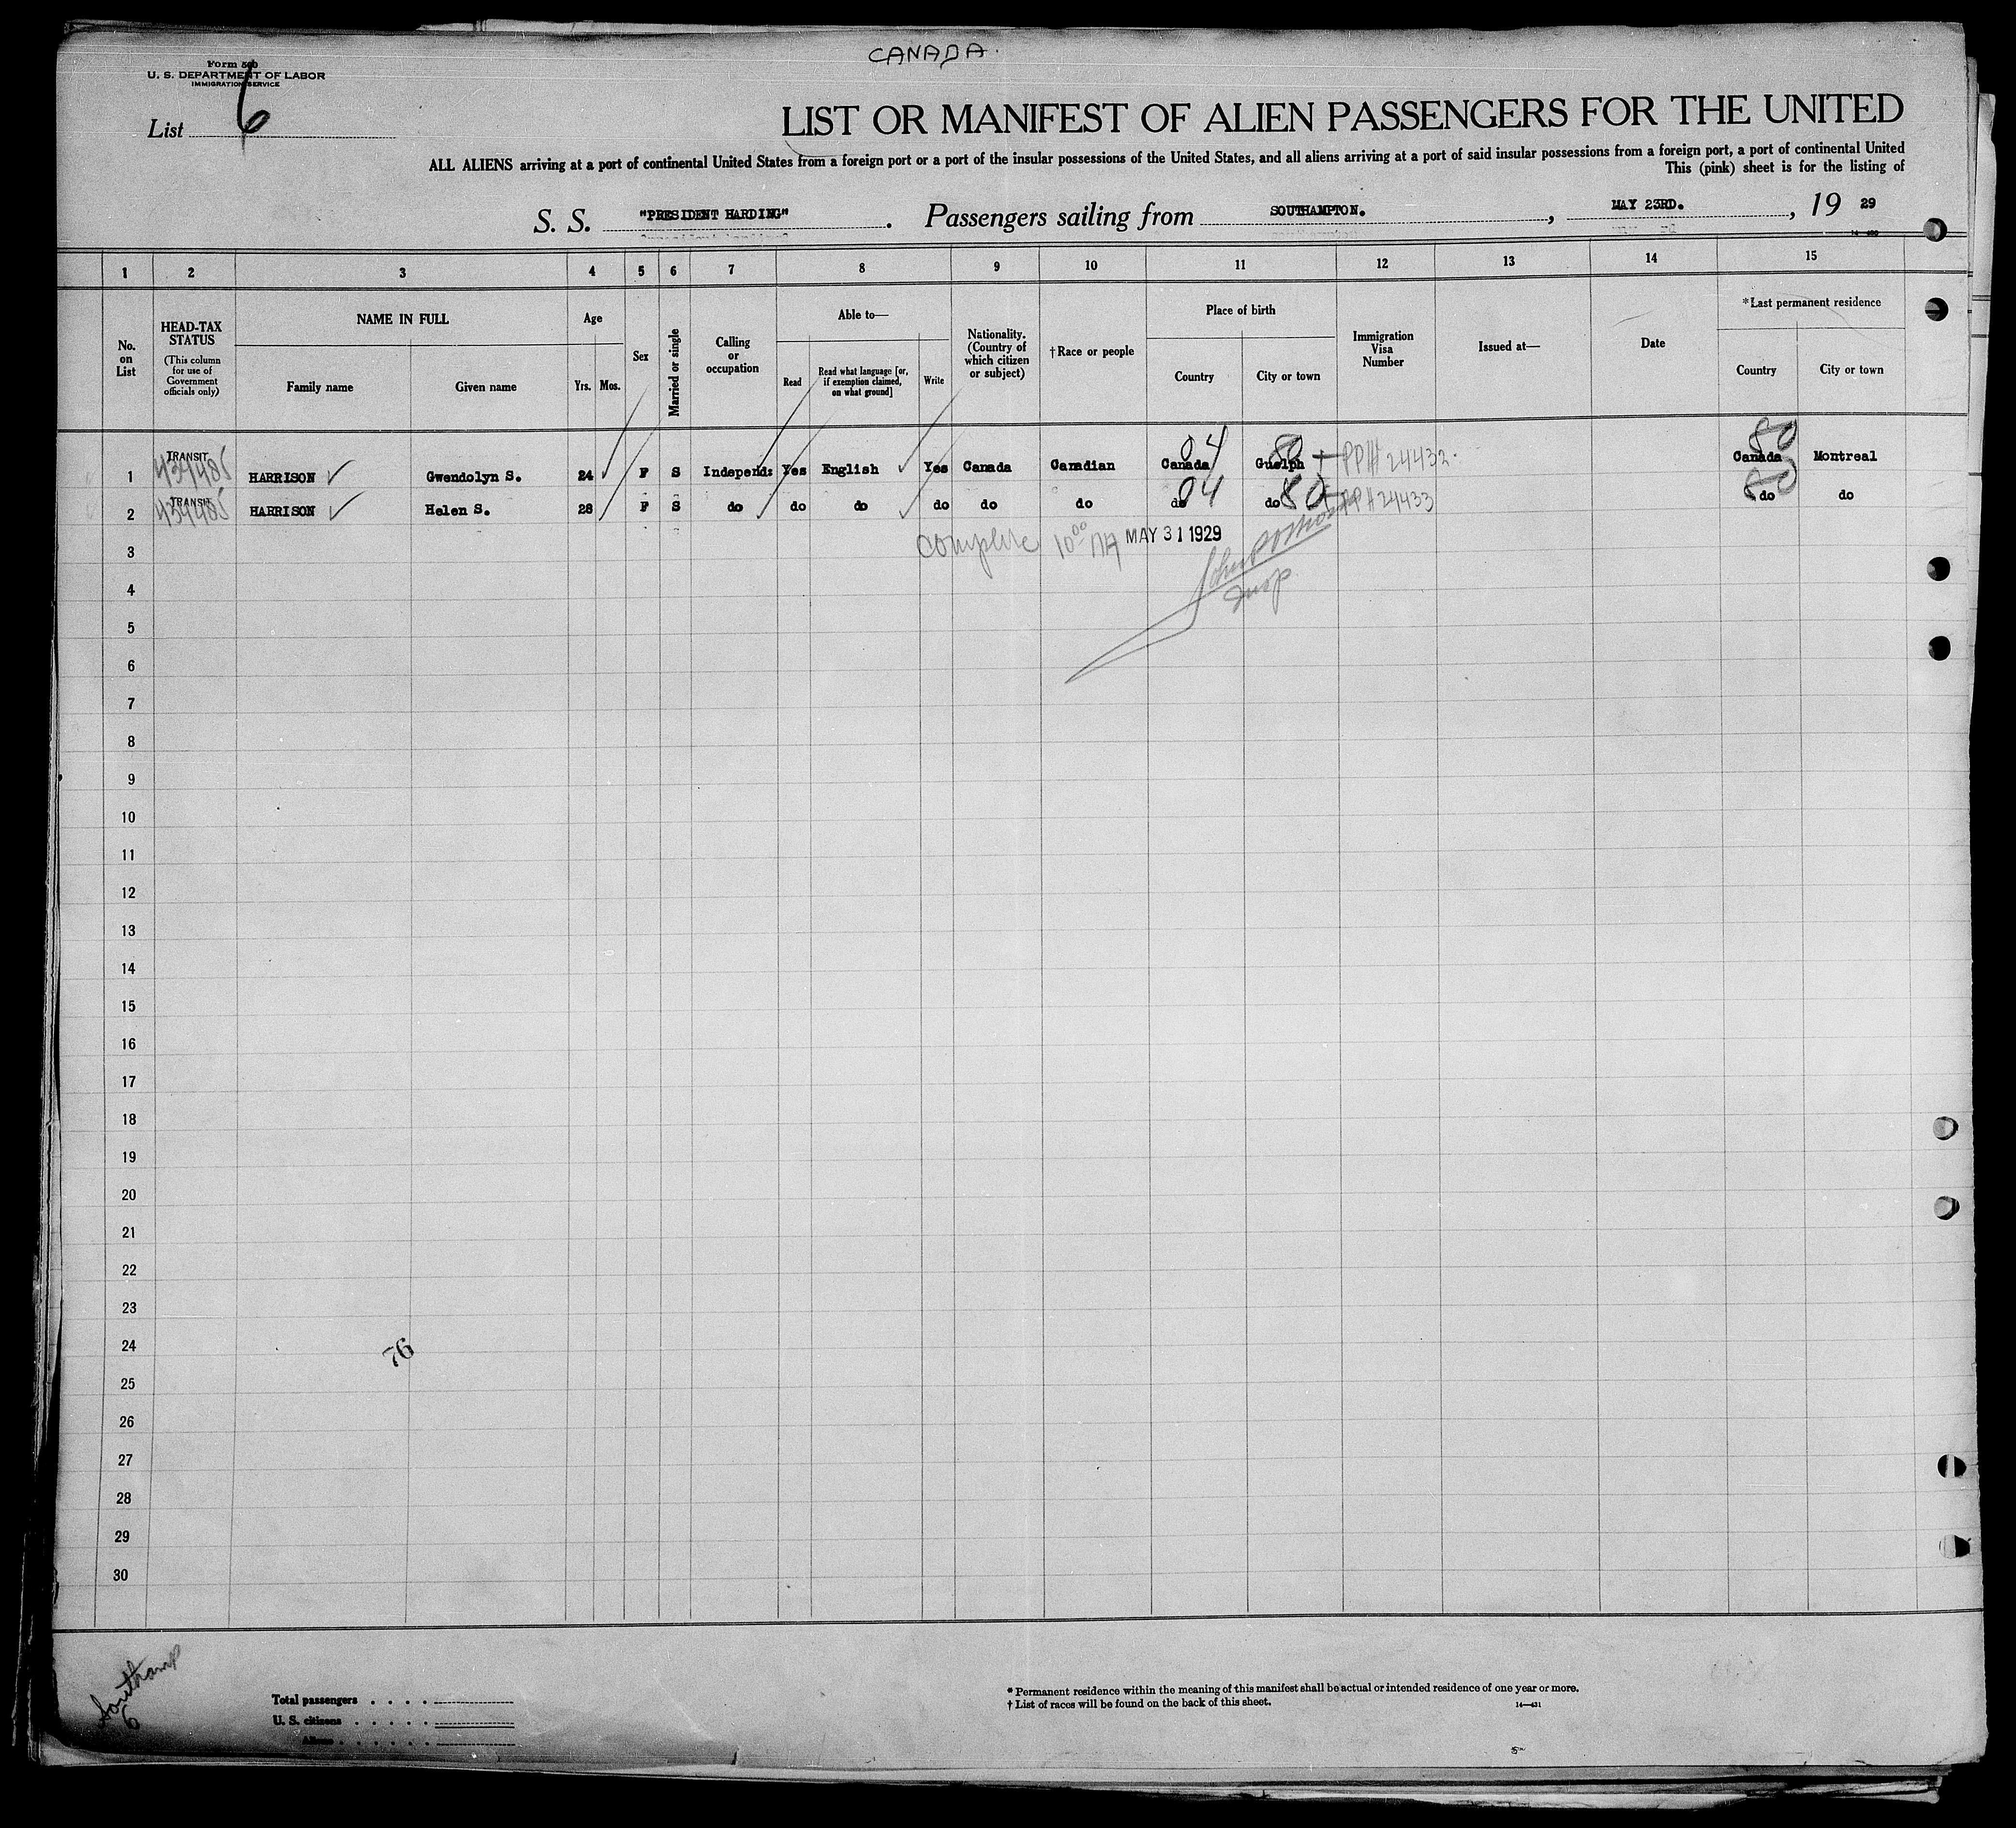 CANADA.
Form 500
U. S. DEPARTMENT OF LABOR
IMMIGRATION SERVICE
List 6
LIST OR MANIFEST OF ALIEN PASSENGERS FOR THE UNITED
ALL ALIENS arriving at a port of continental United States from a foreign port or a port of the insular possessions of the United States, and all aliens arriving at a port of said insular possessions from a foreign port, a port of continental United
This (pink) sheet is for the listing of
S. S. "PRESIDENT HARDING". Passengers sailing from SOUTHAMPTON., MAY 23RD., 19 29
1 2 3 4 5 6 7 8 9 10 11 12 13 14 15
No. on List
HEAD-TAX STATUS (This column for use of Government officials only)
NAME IN FULL
Family name Given name
Age
Yrs. Mos.
Sex
Married or single
Calling or occupation
Able to—
Read Read what language [or, if exemption claimed, on what ground] Write
Nationality. (Country of which citizen or subject)
†Race or people
Place of birth
Country City or town
Immigration Visa Number
Issued at—
Date
*Last permanent residence
Country City or town
04 80 80
1 TRANSIT HARRISON Gwendolyn S. 24 F S Independ: Yes English Yes Canada Canadian Canada Guelph PP# 24432. Canada Montreal
04 80 80
2 TRANSIT HARRISON Helen S. 28 F S do do do do do do do do PP# 24433 do do
3 Complete 10 00 MAY 31 1929
4 Insp
5
6
7
8
9
10
11
12
13
14
15
16
17
18
19
20
21
22
23
24 76
25
26
27
28
29
30
Southamp
6
Total passengers . . . .
U. S. citizens . . . . .
Aliens . . . . . .
* Permanent residence within the meaning of this manifest shall be actual or intended residence of one year or more.
† List of races will be found on the back of this sheet. 14—431